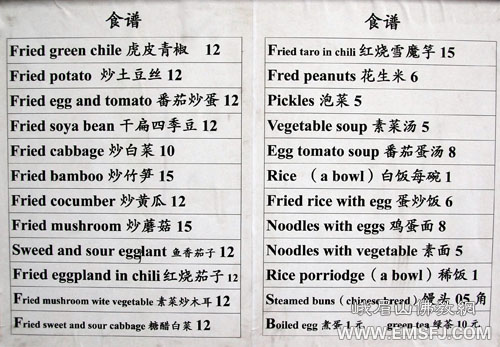 食谱
Fried green chile 虎皮青椒 12
Fried potato 炒土豆丝 12
Fried egg and tomato 番茄炒蛋 12
Fried soya bean 干扁四季豆 12
Fried cabbage 炒白菜 10
Fried bamboo 炒竹笋 15
Fried cocumber 炒黄瓜 12
Fried mushroom 炒蘑菇 15
Sweed and sour egglant 鱼香茄子 12
Fried eggpland in chili 红烧茄子 12
Fried mushroom wite vegetable 素菜炒木耳 12
Fried sweet and sour cabbage 糖醋白菜 12
食谱
Fried taro in chili 红烧雪魔芋 15
Fred peanuts 花生米 6
Pickles 泡菜 5
Vegetable soup 素菜汤 5
Egg tomato soup 番茄蛋汤 8
Rice （a bowl）白饭每碗 1
Fried rice with egg 蛋炒饭 6
Noodles with eggs 鸡蛋面 8
Noodles with vegetable 素面 5
Rice porriodge（a bowl）稀饭 1
Steamed buns (chinese breed) 馒头 05 角
Boiled egg 煮蛋 1 元 green tea 绿茶 10 元
峨眉山佛教網
WWW.EMSFJ.COM